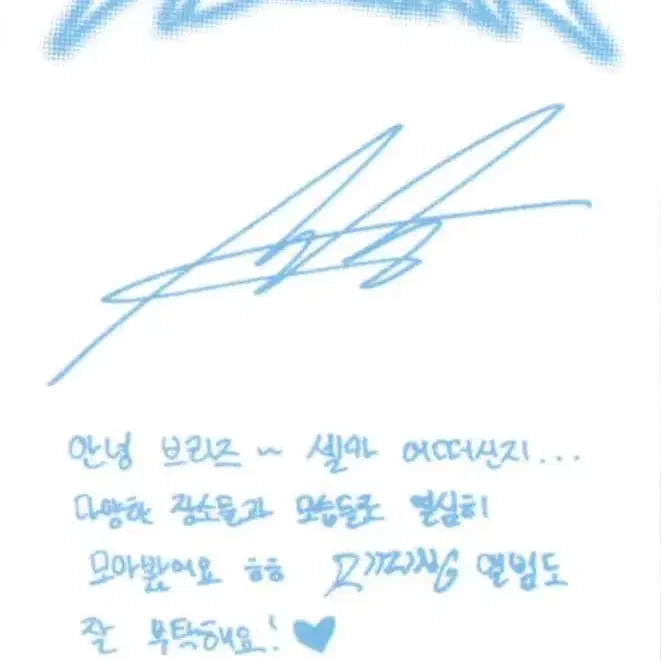 안녕 브리즈 ~ 셀카 어떠신지...
다양한 장소들과 모습들로 열심히
모아봤어요 ㅎㅎ RIIZING 앨범도
잘 부탁해요! ♥